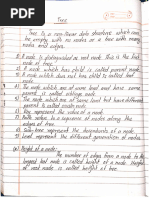 Tree
Tree is a non-linear data structure which can
be empty with no nodes or a tree with many
nodes and edges.
A node is distinguished as root node. This is the first
node of tree.
A node which has child is called parent node.
A node which does not has child is called leaf
node.
The node which are of same level and have same
parent is called siblings node.
The node which are of same level but have different
parent
Key represent the value of a node.
Path refer to a sequence of nodes along the
edges of tree.
Sub-tree represent the descendants of a node.
Level represent the different generation of nodes.
Height of a node:-
The number of edges from a node to the
longest leaf node is called height of node. Height
of root node is called height of tree.